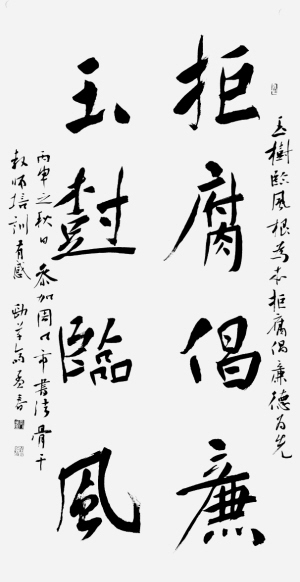 玉樹臨風根為本拒腐倡廉德為先
拒腐倡廉
玉樹臨風
丙申之秋日參加周口市書法骨干
教師培訓有感